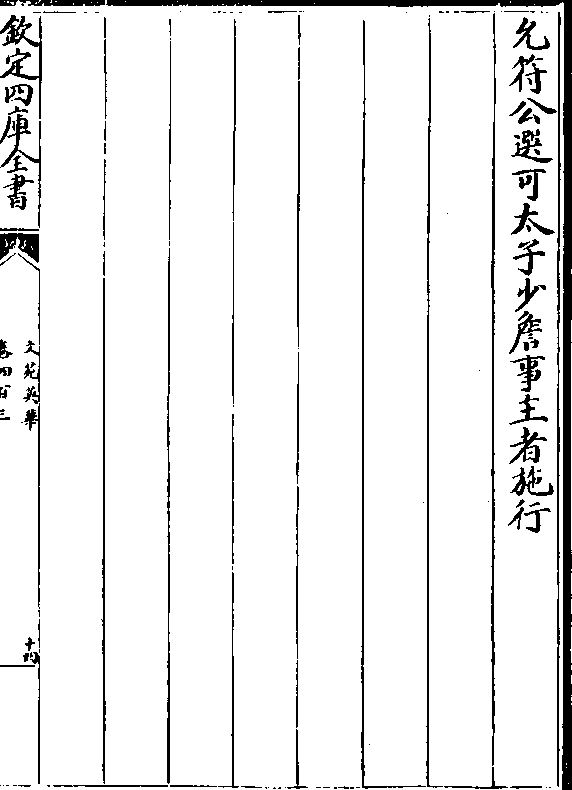 允符公選可太子少詹事主者施行
欽定四庫全書
文苑英華
卷四百三
十四